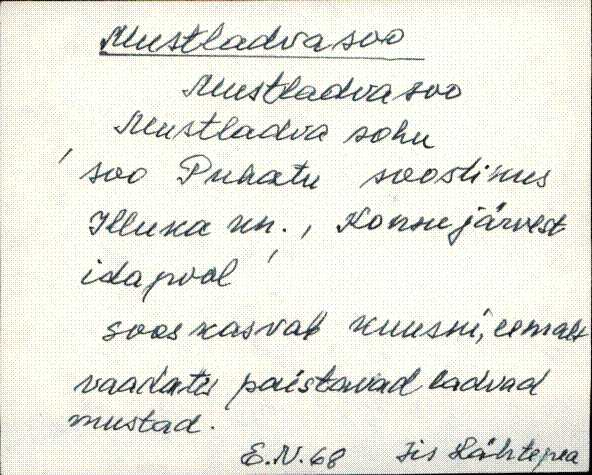 Mustladva soo
Mustladva soo
Mustladva sohu
soo Puhatu soostikus
Illuka kn., Konsu järvest
idapool
soos kasvab kuuski, eemalt
vaadates paistavad ladvad
mustad.
E.N. 68 Iis Lähtepea